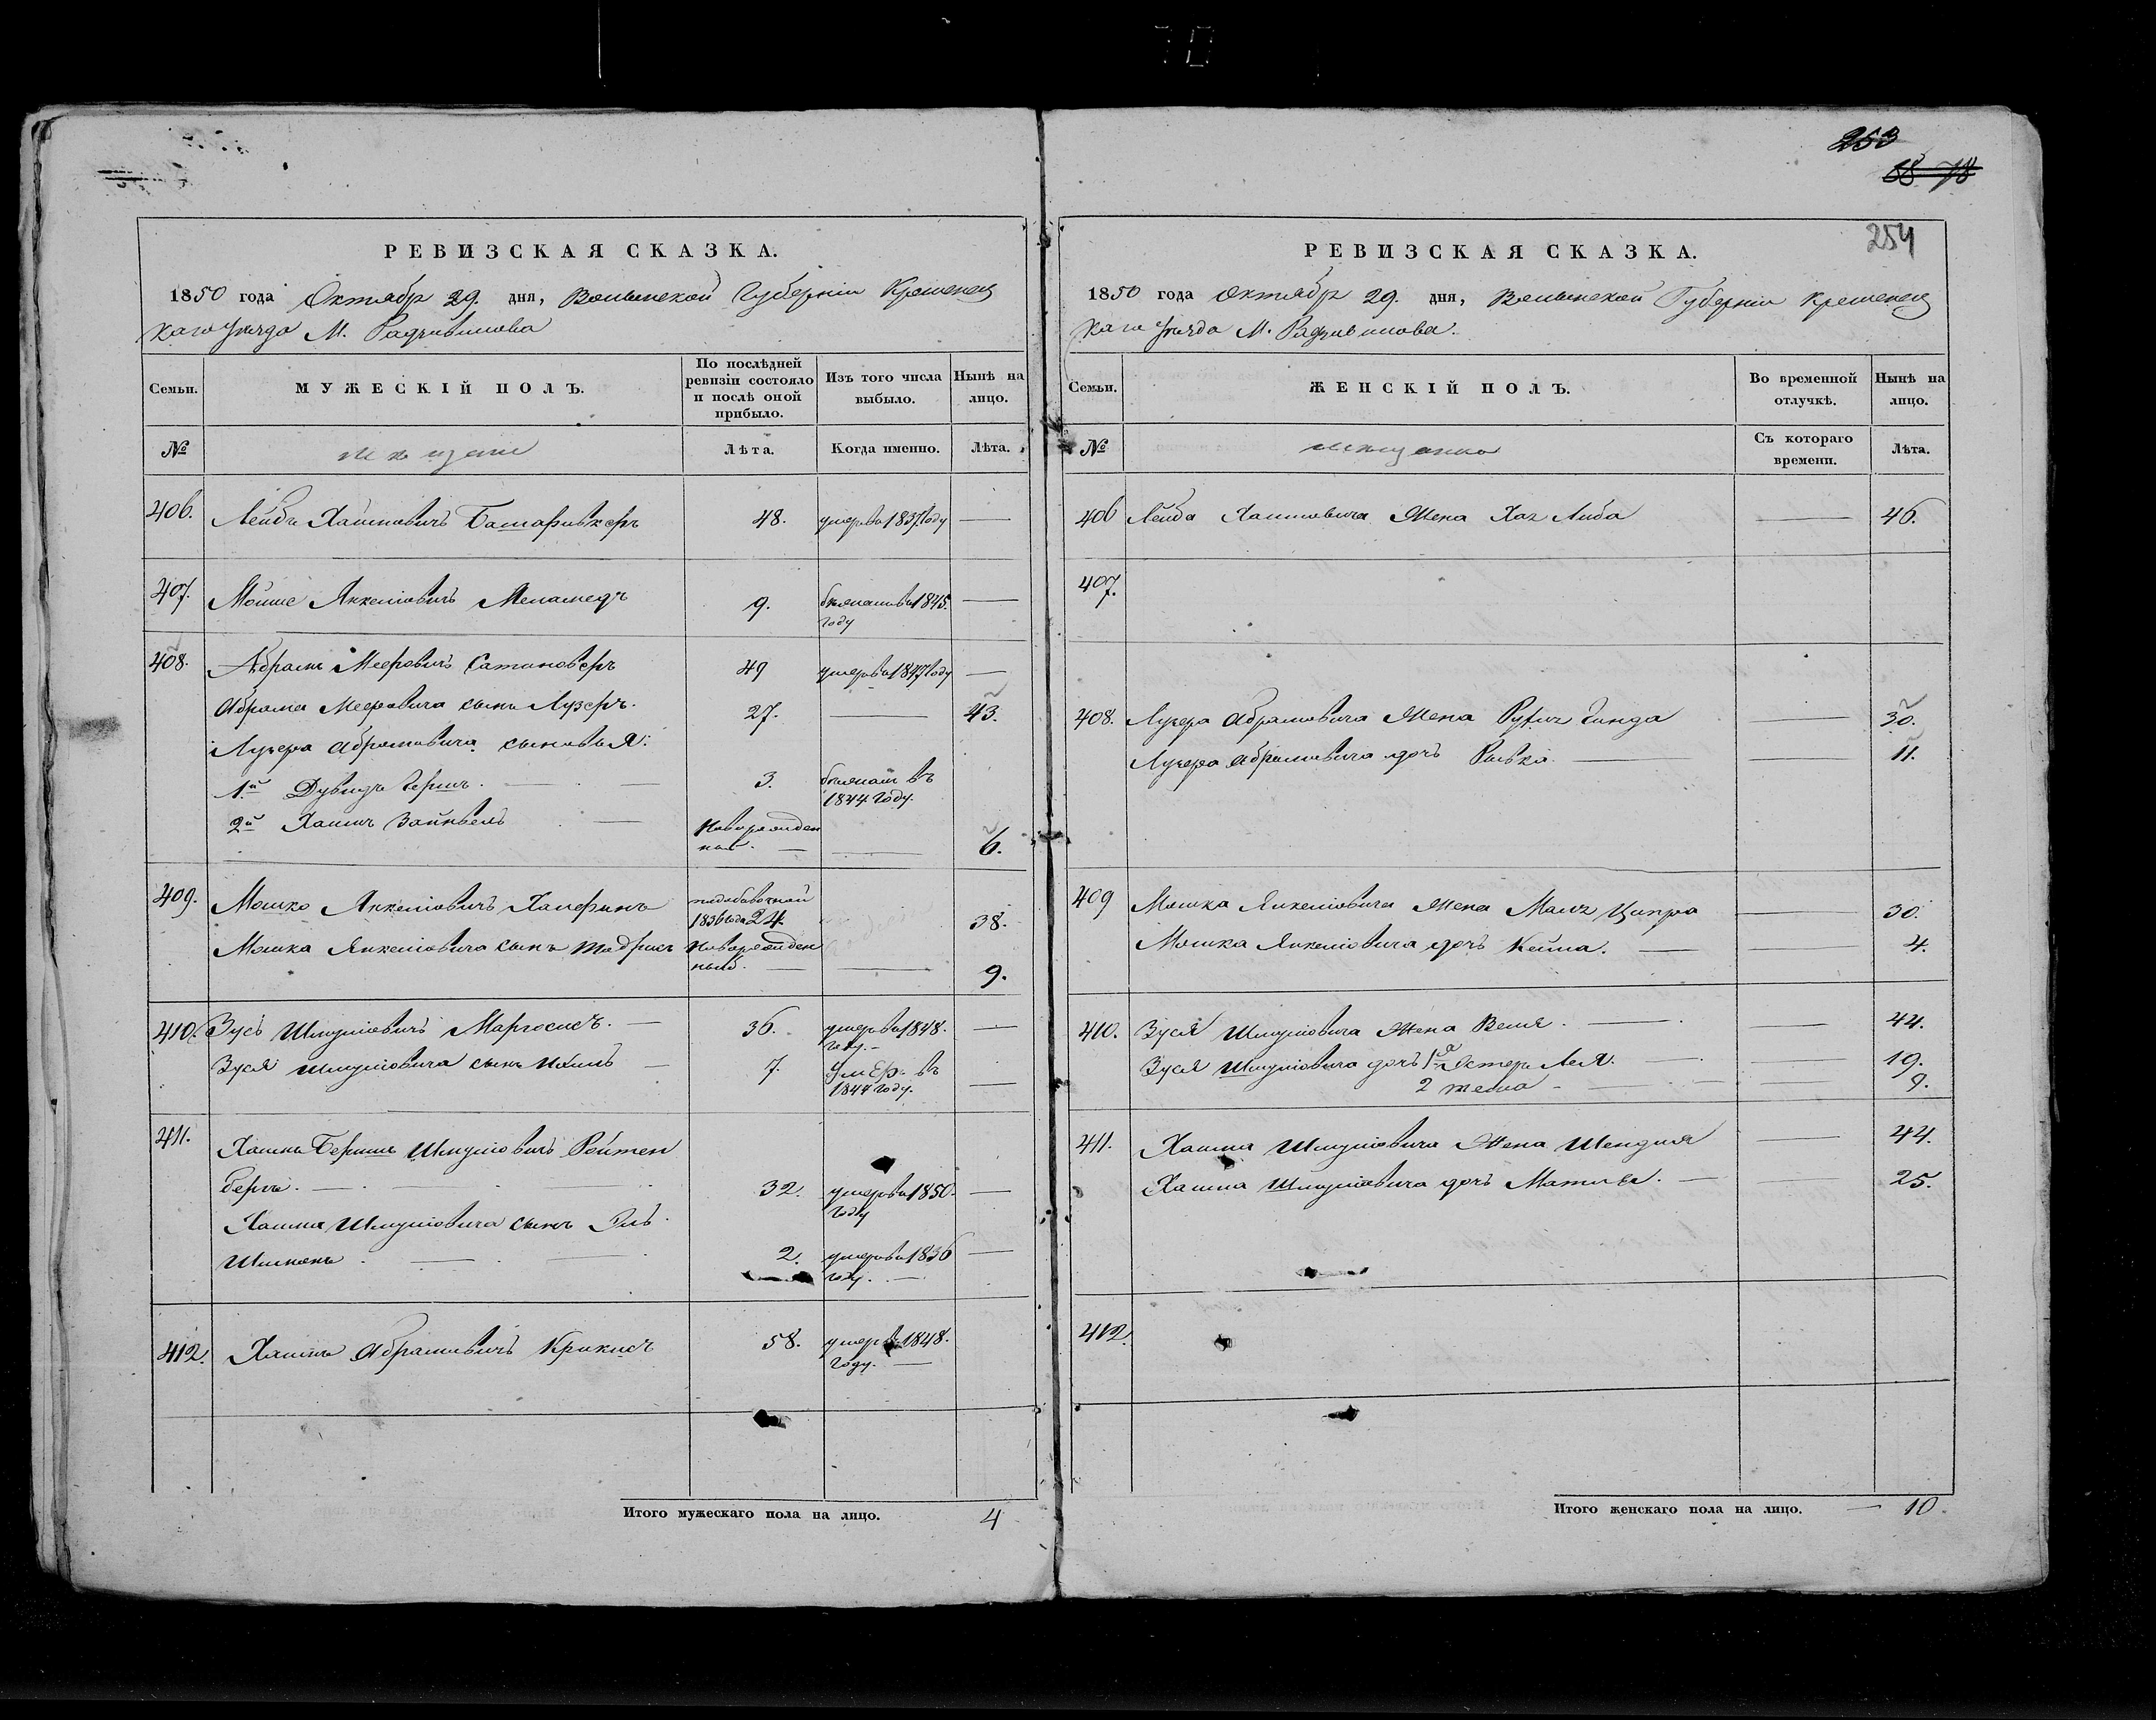 253
68 78
254
РЕВИЗСКАЯ СКАЗКА.
1850 года Октября 29. дня, Волынской Губерніи Кременец
каго Уезда М. Радзивилова
Семьи. МУЖЕСКІЙ ПОЛЪ. По послѣдней ревизіи состояло и послѣ оной прибыло. Изъ того числа выбыло. Нынѣ на лицо.
№ мещане Лѣта. Когда именно. Лѣта.
406. Лейбъ Хаимовичъ 48. умеръ в 1837 году —
407. Мойше Янкелiовичъ Меламедъ 9. 1845. —
году
408. Абрамъ Мееровичъ Сатановеръ 49 умеръ в 1847 году —
Абрама Мееровича сынъ Лузеръ. 27. — 43.
Лузера Абрамовича сыновья:
1й Дувидъ Гершъ. — 3. въ
1844 году.
2й Хаимъ Зайнвель — новорожден
ный. — — 6.
409. Мошко Янкелiовичъ Халфинъ
1836 года 24. 38.
Мошка Янкелiовича сынъ Тодрисъ новорожден
ный. — — 9.
410. Зусь Шмулiовичъ Маргосисъ. — 36. умеръ в 1848. —
году. —
Зуся Шмулiовича сынъ — 7. умер. въ —
1844 году.
411. Хаимъ Беришъ Шмулiовичъ Ройтен
бергъ. — 32. умеръ в 1850. —
году
Хаима Шмулiовича сынъ
2. умеръ в 1836 —
году. —
412. Хаимъ Абрамовичъ Крикисъ 58. умеръ в 1848.
году. —
Итого мужескаго пола на лицо. 4
РЕВИЗСКАЯ СКАЗКА.
1850 года Октября 29. дня, Волынской Губерніи Кременец
каго Уезда М. Радзивилова.
Семьи. ЖЕНСКІЙ ПОЛЪ. Во временной отлучкѣ. Нынѣ на лицо.
№ мещанки Съ котораго времени. Лѣта.
406 Лейба Хаимовича Жена Хая Либа — 46.
407.
408. Лузера Абрамовича Жена Гинда — 30.
Лузера Абрамовича дочь Ривка. — — 11.
409 Мошка Янкелiовича Жена Ципра — 30.
Мошка Янкелiовича дочь Кейла. — — 4.
410. Зуся Шмулiовича Жена Веля. — — 44.
Зуся Шмулiовича дочь 1я Эстеръ Лея. — — 19.
2 — — 9.
411. Хаима Шмулiовича Жена Шендля — 44.
Хаима Шмулiовича дочь — 25.
412.
Итого женскаго пола на лицо. — 10.